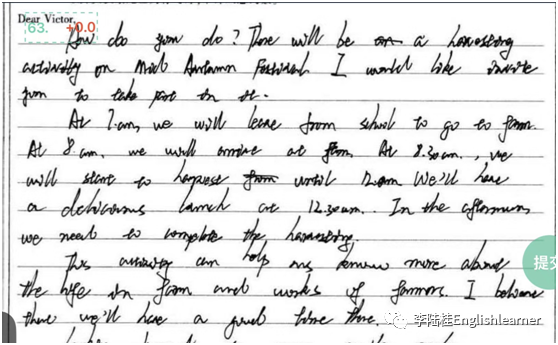 Dear Victor,
63. +0.0
How do you do? There will be a harvesting
activity on Mid Autumn Festival I would like invite
you to take part in it.
At 7 am, we will leave from school to go to farm.
At 8 am. we will arrive at farm. At 8.30 am., we
will start to harvest until 12 am We'll have
a delicious lunch at 12.30 am. In the afternoon,
we need to complete the harvesting.
This activity can help us know more about
the life in farm and works of farmers. I believe
there we'll have a good time there.
提交
李陆桂Englishlearner